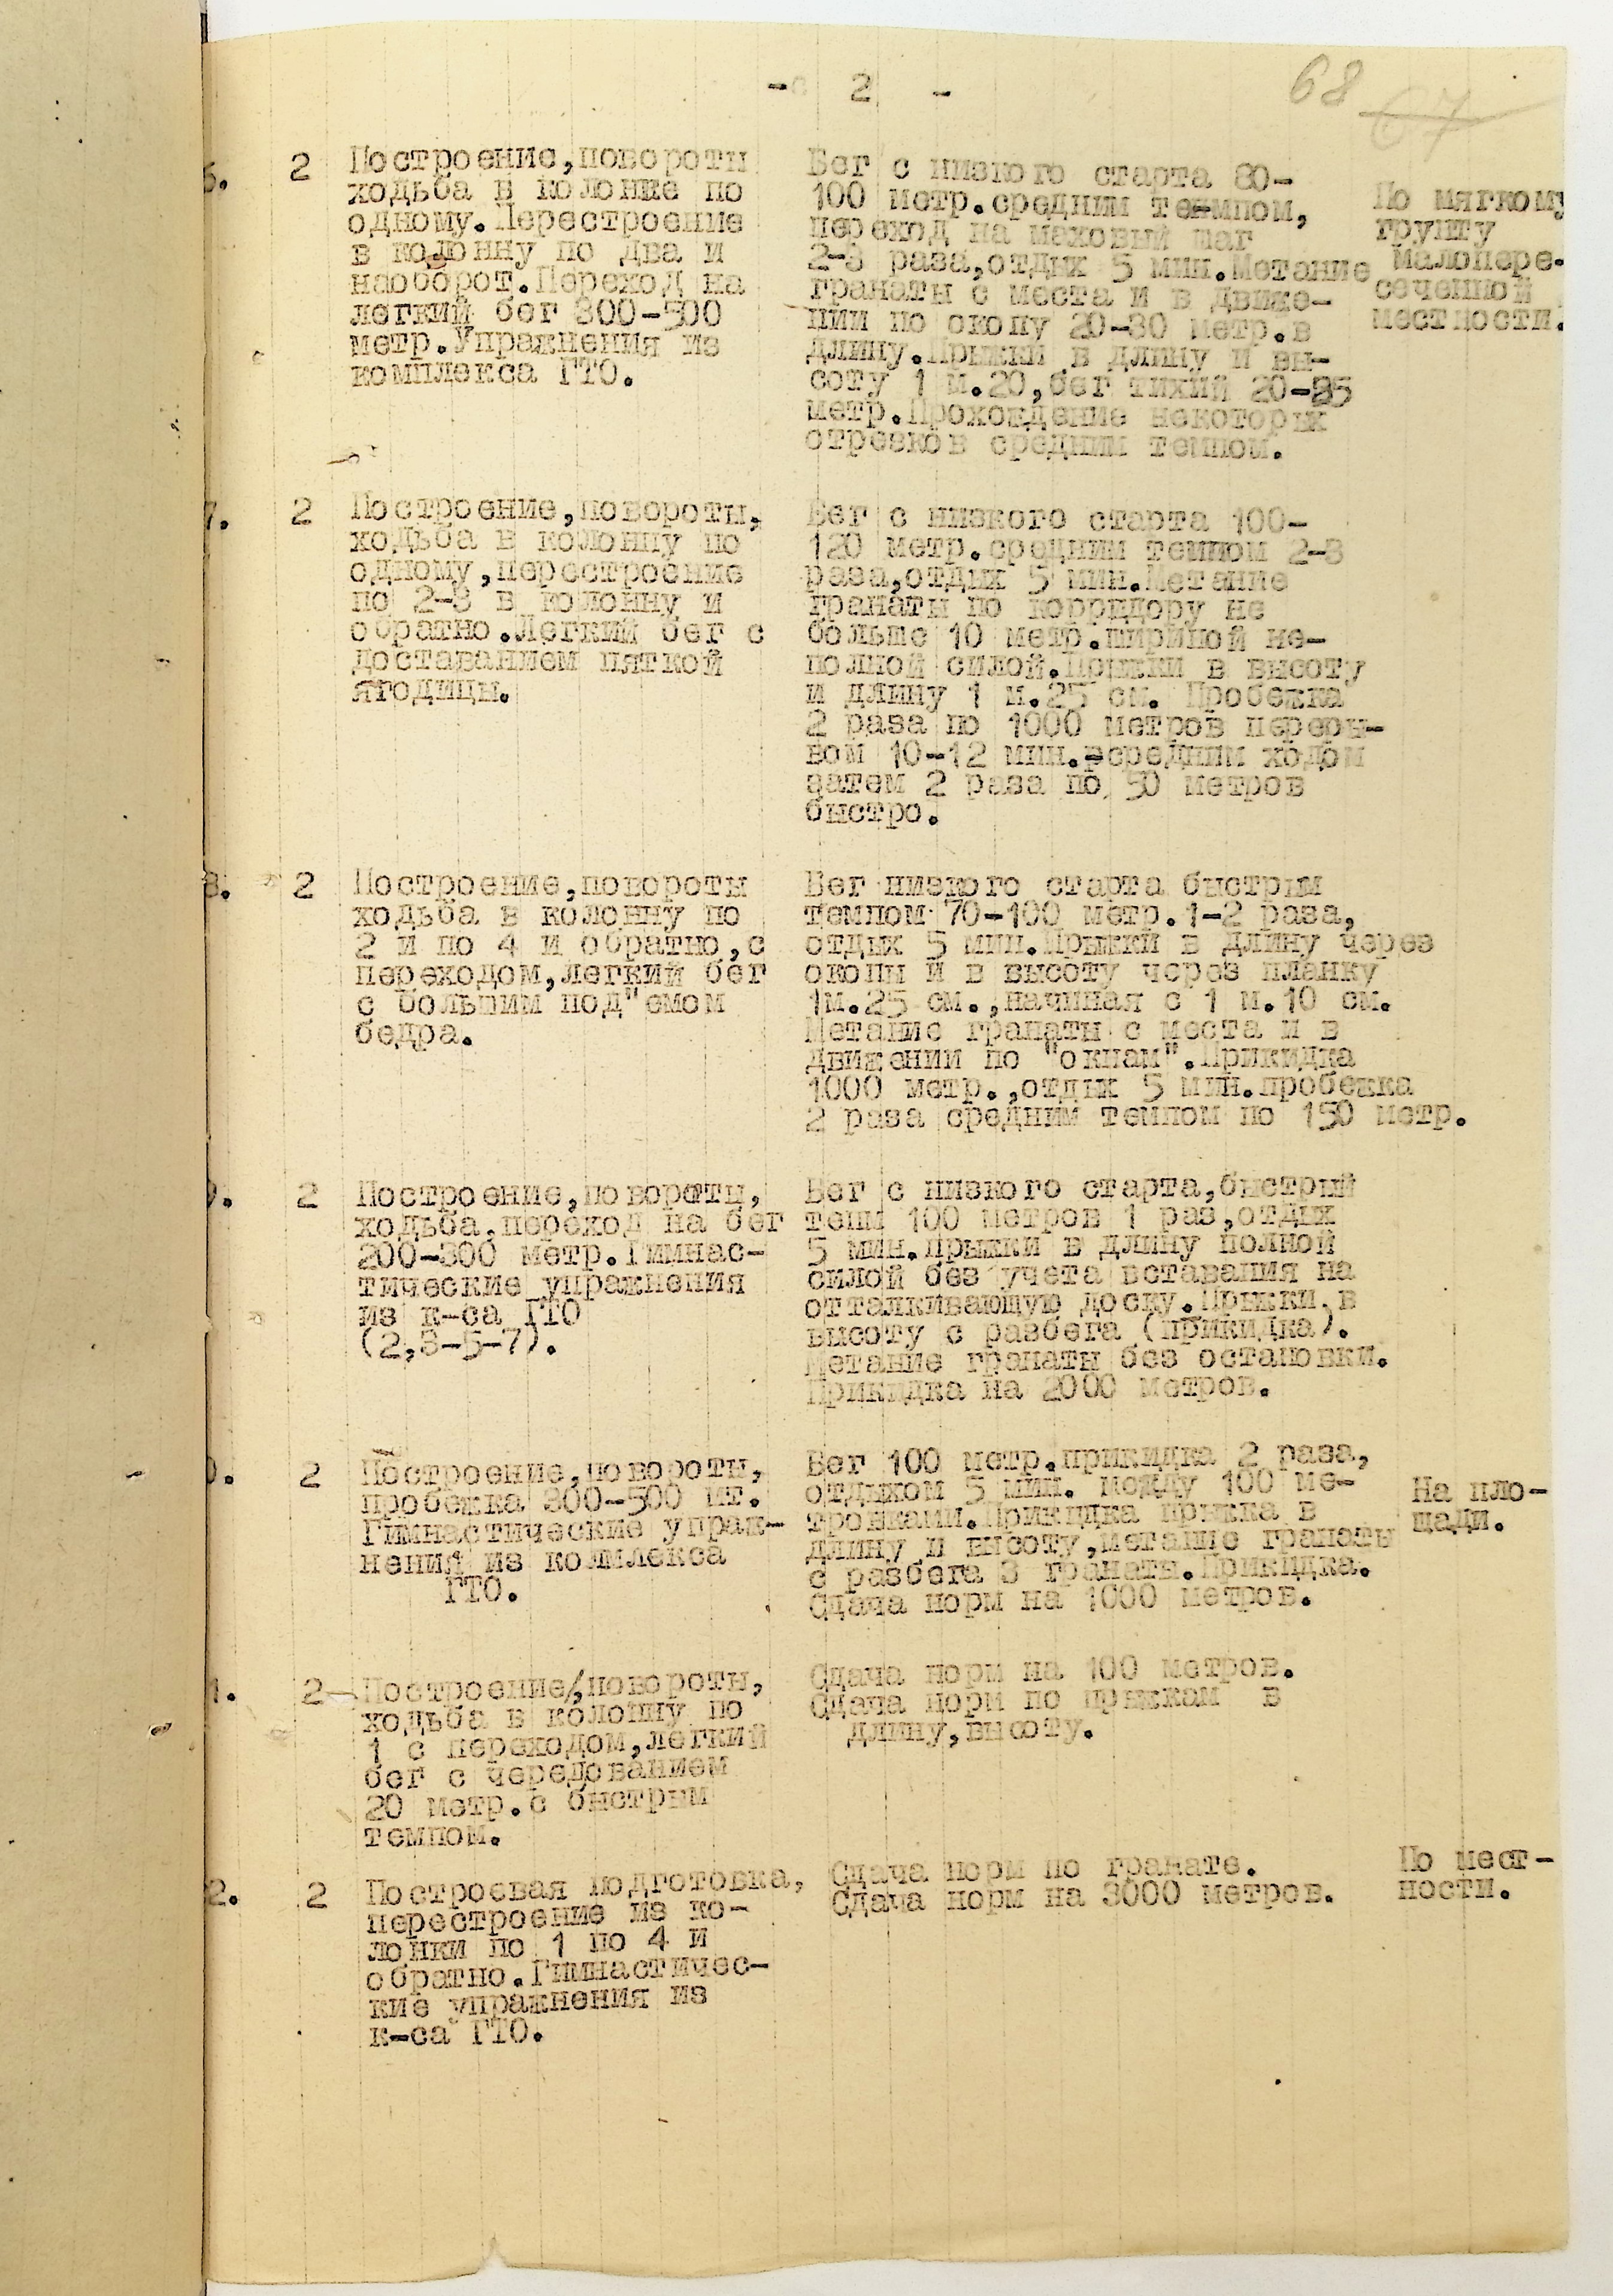 - 2 -
68
67
6.
2
Построение,повороты
ходьба в колонне по
одному.Перестроение
в колонну по два и
наоборот.Переход на
легкий бег 300-500
метр.Упражнения из
комплекса ГТО.
Бег с низкого старта 80-
100 метр.средним темпом,
переход на маховый шаг
2-3 раза,отдых 5 мин.Метание
гранаты с места и в движе-
нии по окопу 20-30 метр.в
длину.Прыжки в длину и вы-
соту 1 м.20,бег тихий 20-25
метр.Прохождение некоторых
отрезков средним темпом.
По мягкому
грунту
малопере-
сеченной
местности.
7.
2
Построение,повороты,
ходьба в колонну по
одному,перестроение
по 2-3 в колонну и
обратно.Легкий бег с
доставанием пяткой
ягодицы.
Бег с низкого старта 100-
120 метр.средним темпом 2-3
раза,отдых 5 мин.Метание
гранаты по корридору не
больше 10 метр.шириной не-
полной силой.Прыжки в высоту
и длину 1 м.25 см. Пробежка
2 раза по 1000 метров переры-
вом 10-12 мин.средним ходом
затем 2 раза по 50 метров
быстро.
8.
2
Построение,повороты
ходьба в колонну по
2 и по 4 и обратно,с
переходом,легкий бег
с большим под"емом
бедра.
Бег низкого старта быстрым
темпом 70-100 метр.1-2 раза,
отдых 5 мин.Прыжки в длину через
окопы и в высоту через планку
1м.25 см.,начиная с 1 м.10 см.
Метание гранаты с места и в
движении по "окнам".Прикидка
1000 метр.,отдых 5 мин.пробежка
2 раза средним темпом по 150 метр.
9.
2
Построение,повороты,
ходьба,переход на бег
200-300 метр.Гимнас-
тические упражнения
из к-са ГТО
(2,3-5-7).
Бег с низкого старта,быстрый
темп 100 метров 1 раз,отдых
5 мин.Прыжки в длину полной
силой без учета вставания на
отталкивающую доску.Прыжки в
высоту с разбега (прикидка).
Метание гранаты без остановки.
Прикидка на 2000 метров.
0.
2
Построение,повороты,
пробежка 300-500 мт.
Гимнастические упраж-
нения из комплекса
ГТО.
Бег 100 метр.прикидка 2 раза,
отдыхом 5 мин. между 100 ме-
тровками.Прикидка прыжка в
длину и высоту,метание гранаты
с разбега 3 гранаты.Прикидка.
Сдача норм на 1000 метров.
На пло-
щади.
1.
2
Построение,повороты,
ходьба в колонну по
1 с переходом,легкий
бег с чередованием
20 метр.с быстрым
темпом.
Сдача норм на 100 метров.
Сдача норм по прыжкам в
длину,высоту.
2.
2
Построевая подготовка,
перестроение из ко-
лонки по 1 по 4 и
обратно.Гимнастичес-
кие упражнения из
к-са ГТО.
Сдача норм по гранате.
Сдача норм на 3000 метров.
По мест-
ности.